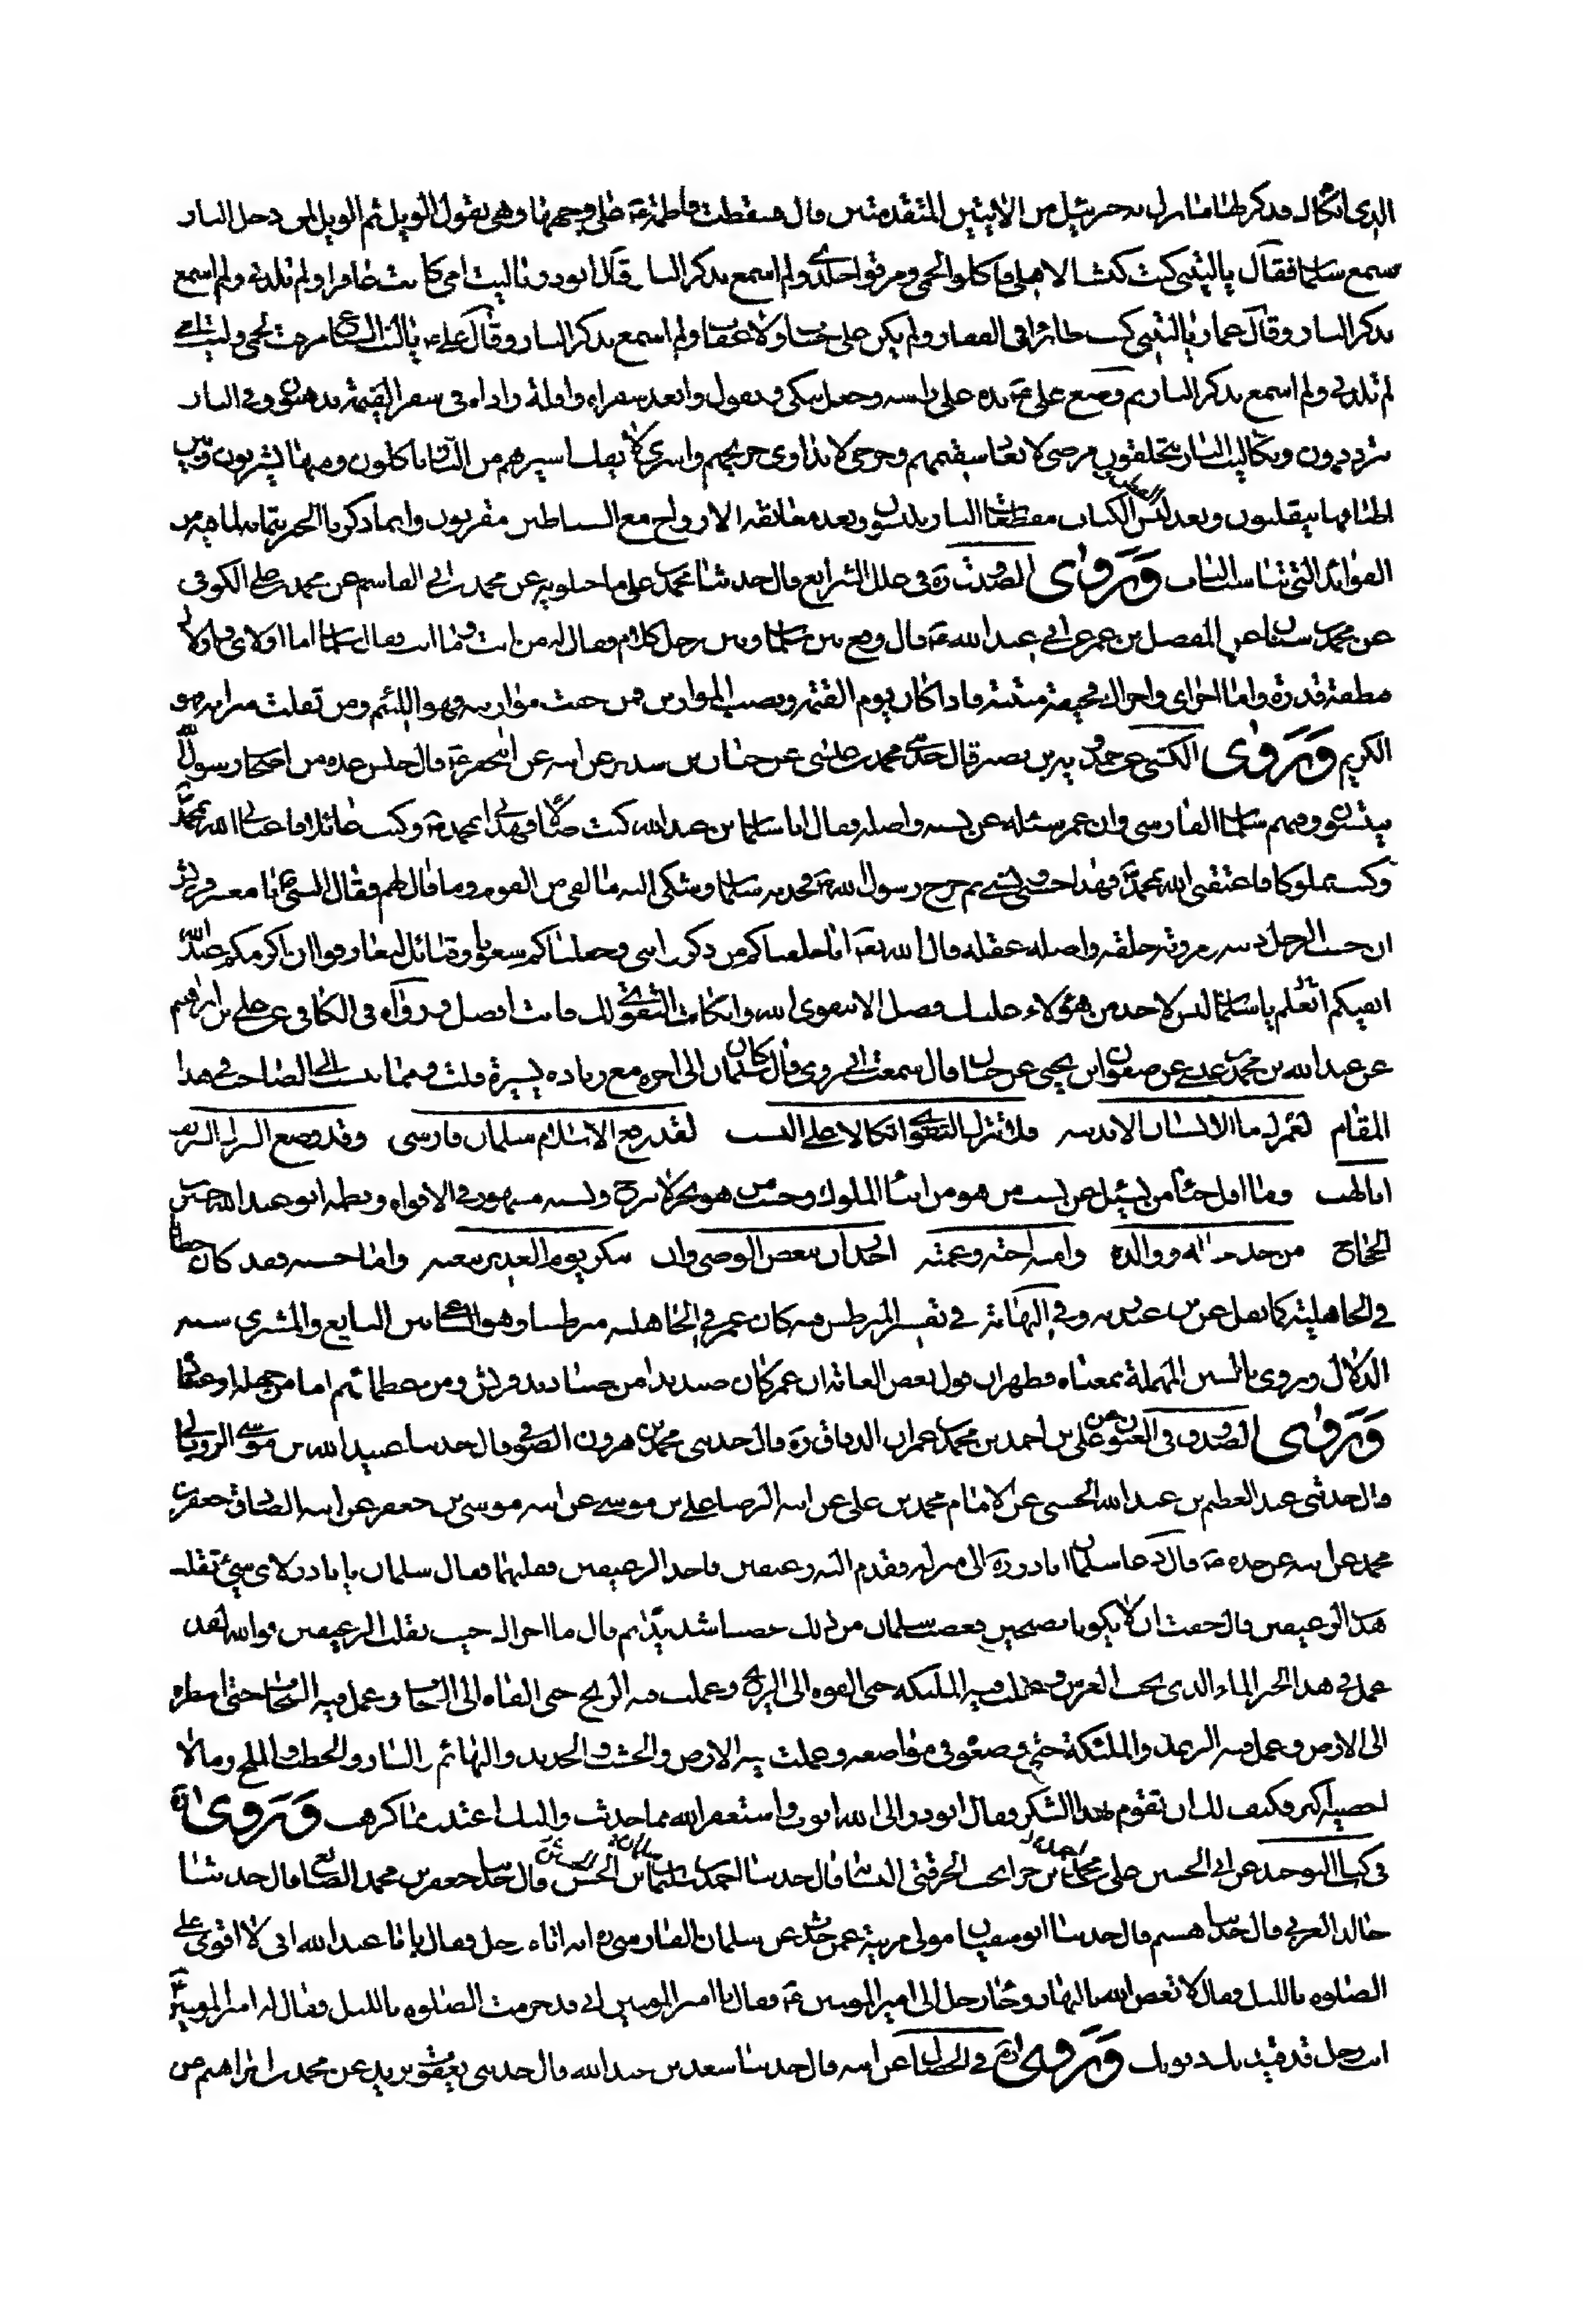 فذكر لها ما نزل به جبرئيل من الآيتين المتقدمتين قال فسقطت فاطمة ع على وجهها وهي تقول الويل ثم الويل لمن دخل النار
فسمع سلمان فقال يا ليتني كنت كبشا لأهلي فأكلوا لحمي ومزقوا جلدي ولم اسمع بذكر النار وقال ابوذر يا ليت امي كانت عاقرا ولم تلدني ولم اسمع
بذكر النار وقال عمار يا ليتني كنت طائرا في القفار ولم يكن علي حساب ولا عقاب ولم اسمع بذكر النار وقال علي ع يا ليت السباع مزقت لحمي وليت امي
لم تلدني ولم اسمع بذكر النار ثم وضع علي ع يده على رأسه وجعل يبكي ويقول وا بعد سفراه وا قلة زاداه في سفر القيمة يذهبون وفي النار
يترددون وبكلاليب النار يتخطفون مرضى لا يعاد سقيمهم وجرحى لا يداوى جريحهم واسرى لا يفك اسيرهم من النار يأكلون ومنها يشربون وبين
اطباقها يتقلبون وبعد لبس القطن مقطعات النار يلبسون وبعد معانقة الازواج مع الشياطين مقرنون وانما ذكرنا الخبر بتمامه لما فيه من
الفوائد التي تناسب الباب وروى الصدوق ره في علل الشرايع قال حدثنا محمد بن علي ماجيلويه عن محمد بن ابي القاسم عن محمد بن علي الكوفي
عن محمد بن سنان عن المفضل بن عمر عن ابي عبد الله ع قال وقع بين سلمان وبين رجل كلام فقال له من انت وما انت فقال سلمان اما اولاي واولاك
فنطفة قذرة واما اخراي واخراك فجيفة منتنة فاذا كان يوم القيمة ونصبت الموازين فمن خفت موازينه فهو اللئيم ومن ثقلت موازينه فهو
الكريم وروى الكشي عن حمدويه بن نصير قال حدثني محمد بن عيسى عن حنان بن سدير عن ابيه عن ابي جعفر ع قال جلس عدة من اصحاب رسول الله
ينتسبون وفيهم سلمان الفارسي وان عمر سئله عن نسبه واصله فقال انا سلمان بن عبد الله كنت ضالا فهداني الله بمحمد وكنت عائلا فاغناني الله بمحمد
وكنت مملوكا فاعتقني الله بمحمد فهذا حسبي ونسبي ثم خرج رسول الله ص فحدثه سلمان وشكى اليه ما لقي من القوم وما قال لهم فقال النبي ص يا معشر قريش
ان حسب الرجل دينه ومروته خلقه واصله عقله قال الله تعالى انا خلقناكم من ذكر وانثى وجعلناكم شعوبا وقبائل لتعارفوا ان اكرمكم عند الله
اتقيكم اتعلم يا سلمان ليس لاحد من هؤلاء عليك فضل الا بتقوى الله وان كانت التقوى لك فانت افضل ورواه في الكافي عن علي بن ابراهيم
عن عبد الله بن محمد بن عيسى عن صفوان بن يحيى عن حنان قال سمعت ابي يروي قال كان سلمان الى اخره مع زيادة يسيرة قلت ومما ينسب الى الصاحب في هذا
المقام لعمرك ما الانسان الا بدينه فلا تترك التقوى اتكالا على النسب لقد رفع الاسلام سلمان فارسي وقد وضع الشرك الشريف
ابا لهب وما اقل حياء من يسئل عن نسب من هو من ابناء الملوك ونسبه مشهور في الافواه ونظمه ابو عبد الله حسين
الحجاج من جده خاله ووالده وامه اخته وعمته اجدر ان يبغض الوصي وان ينكر يوم الغدير بيعته واما حسبه فقد كان حطابا
في الجاهلية كما نقل عن وفي النهاية في تفسير المبرطس فيه كان عمر في الجاهلية مبرطسا وهو الساعي بين البايع والمشتري شبه
الدلال ويروى بالسين المهملة بمعناه فظهر ان قول بعض العامة ان عمر كان صنديدا من صناديد قريش ومن عظمائهم اما من جهله او عناده
وروى الصدوق في العيون عن علي بن احمد بن محمد بن عمران الدقاق ره قال حدثني محمد بن هرون الصوفي قال حدثنا عبيد الله بن موسى الروياني
قال حدثني عبد العظيم بن عبد الله الحسني عن الامام محمد بن علي عن ابيه الرضا علي بن موسى عن ابيه موسى بن جعفر عن ابيه الصادق جعفر بن
محمد عن ابيه عن جده ع قال دعا سلمان اباذر ره الى منزله فقدم اليه رغيفين فاخذ ابوذر الرغيفين فقلبهما فقال سلمان يا اباذر لاي شيء تقلب
هذا الرغيفين قال خفت ان لا يكونا نضيجين فغضب سلمان من ذلك غضبا شديدا ثم قال ما اجراك حيث تقلب الرغيفين فوالله لقد
عمل في هذا الخبز الماء الذي تحت العرش وعملت فيه الملئكة حتى القوه الى الريح وعملت فيه الريح حتى القاه الى السحاب وعمل فيه السحاب حتى امطره
الى الارض وعمل فيه الرعد والملئكة حتى وضعوه في مواضعه وعملت فيه الارض والخشب والحديد والبهائم والنار والحطب والملح وما لا
احصيه اكثر فكيف لك ان تقوم بهذا الشكر فقال ابوذر الى الله اتوب واستغفر الله مما احدثت واليك اعتذر مما كرهت وروى
في كتاب التوحيد عن ابي الحسين علي محمد بن قال حدثنا احمد بن سلمان بن الحسن قال حدثنا جعفر بن محمد الصائغ قال حدثنا
خالد العرني قال حدثنا هشيم قال حدثنا ابو سفيان مولى مزينة عمن حدث عن سلمان الفارسي ره انه اتاه رجل فقال يا ابا عبد الله اني لا اقوى على
الصلوة بالليل فقال لا تعص الله بالنهار وجاء رجل الى امير المؤمنين ع فقال يا امير المؤمنين اني قد حرمت الصلوة بالليل فقال له امير المؤمنين
انت رجل قد قيدتك ذنوبك وروى في الخصال عن ابيه قال حدثنا سعد بن عبد الله قال حدثني يعقوب بن يزيد عن محمد بن ابراهيم عن